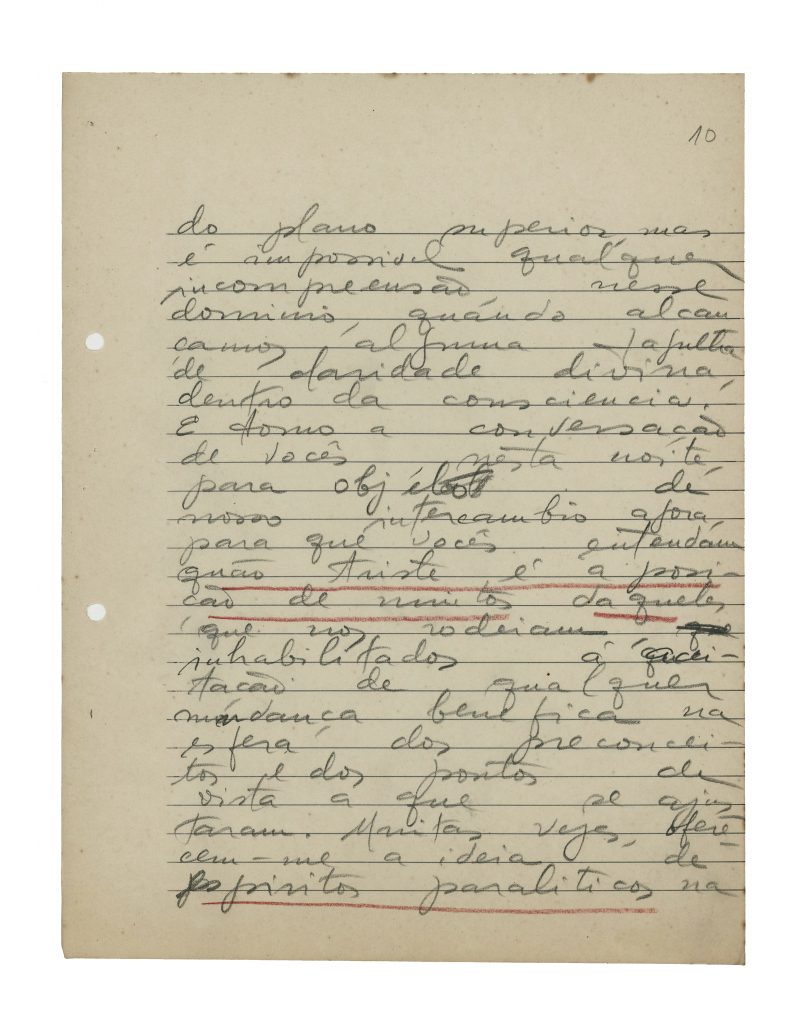 10
do plano superior, mas
é impossivel qualquer
incompreensão nesse
dominio, quando alcan
camos alguma fagulha
de claridade divina,
dentro da consciencia.
E torno a conversação
de vocês nesta noite,
para objéto de
nosso intercambio agora,
para que vocês entendam
quão triste é a posi-
cão de muitos daqueles
que nos rodeiam
inhabilitados á acei-
tacão de qualquer
mudanca benefica na
esfera dos preconcei-
tos e dos pontos de
vista a que se ajus
taram. Muitas vezes, ofere
cem-me a ideia de
espiritos paraliticos na